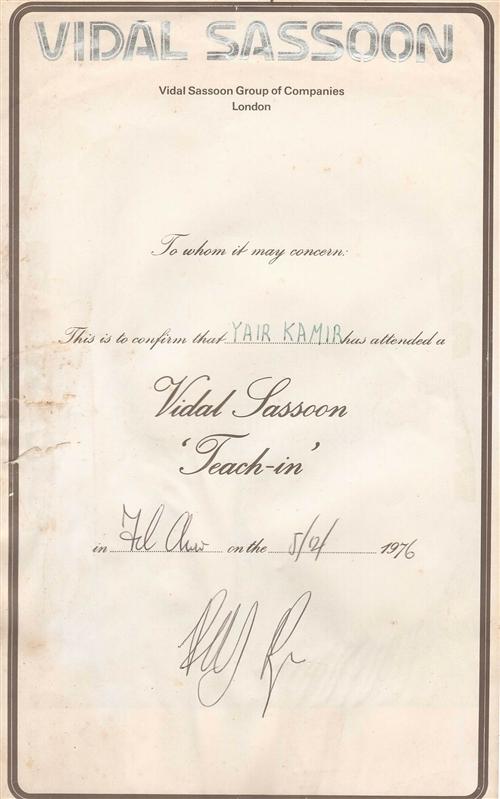 VIDAL SASSOON
Vidal Sassoon Group of Companies
London
To whom it may concern:
This is to confirm that YAIR KAMIR has attended a
Vidal Sassoon
'Teach-in'
in Tel Aviv on the 1976